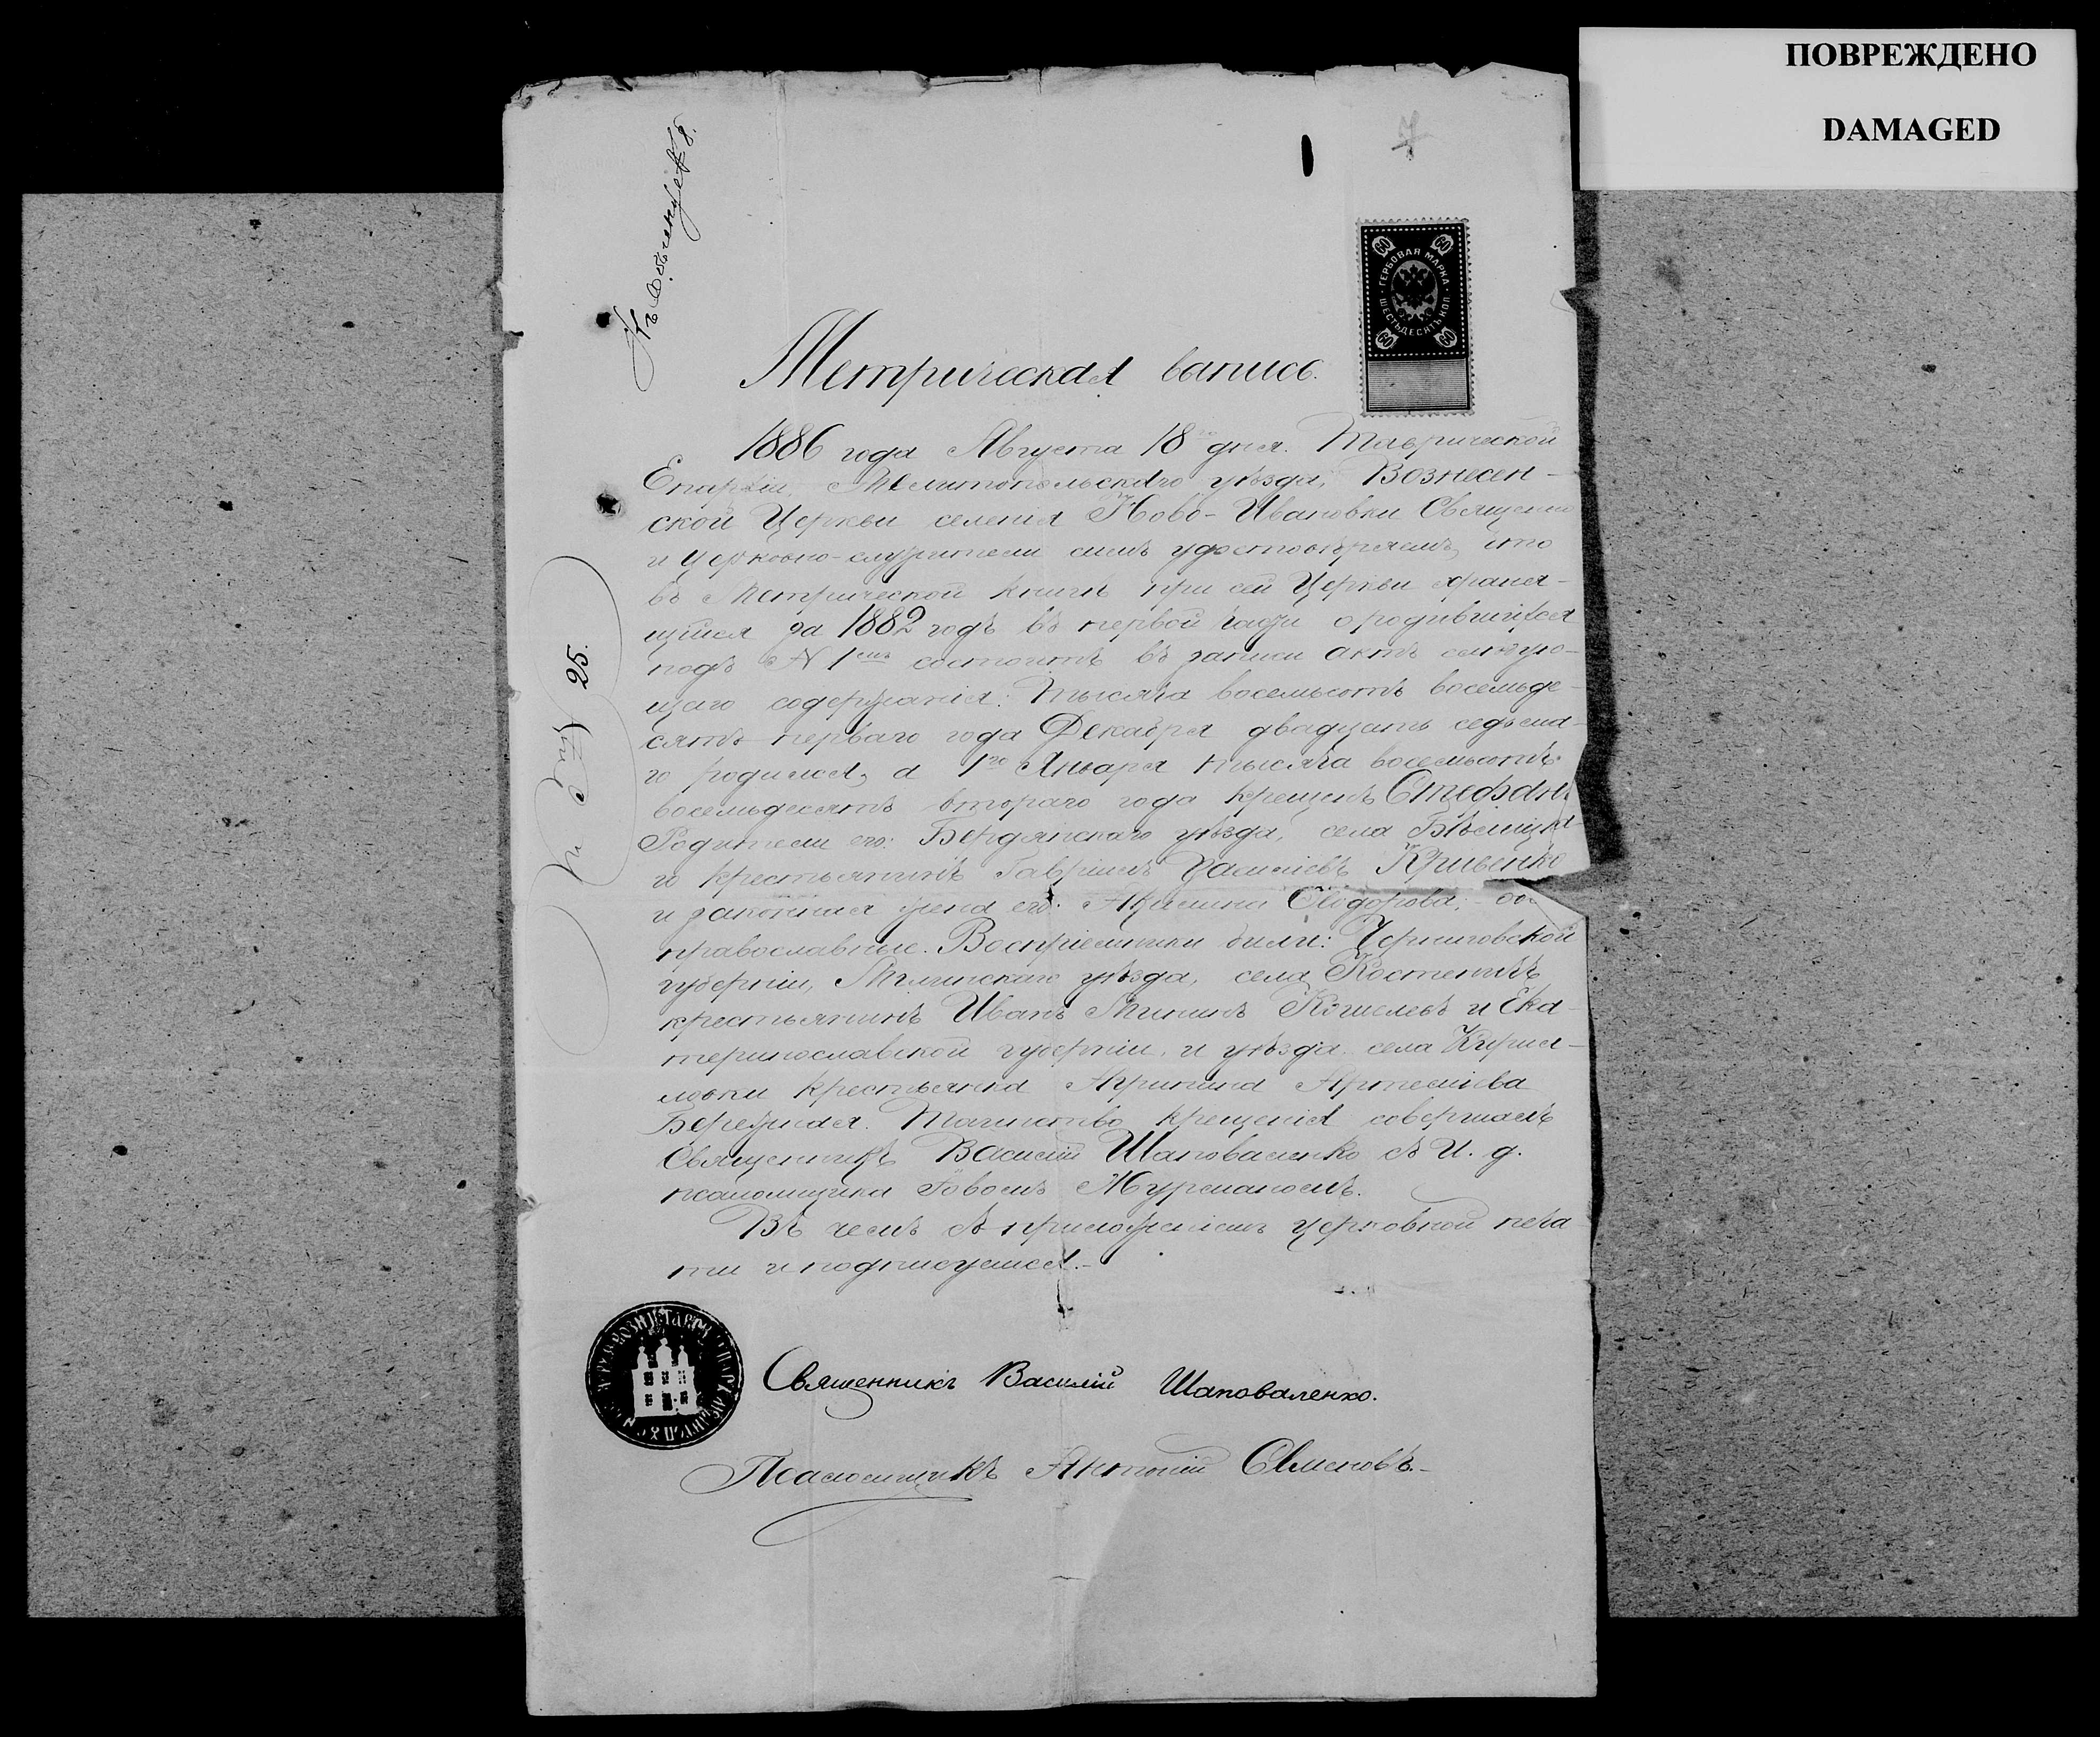 ПОВРЕЖДЕНО
DAMAGED
7
ГЕРБОВАЯ МАРКА
ШЕСТЬДЕСЯТЪ КОП.
60 60
60 60
Метрическая выпись.
1886 года Августа 18 дня. Таврической
Епархіи, Мелитопольскаго уѣзда, Вознесен-
ской Церкви селенія Ново-Ивановки Священно
и Церковно-служители симъ удостовѣряемъ, что
въ Метрической книгѣ при сей Церкви храня-
щейся за 1882 годъ въ первой части о родившихся
подъ № 1мъ состоитъ въ записи актъ слѣдую-
щаго содержанія: Тысяча восемьсотъ восемьде-
сятъ перваго года Декабря двадцать седьма-
го родился, а 1го Января тысяча восемьсотъ
восемьдесятъ втораго года крещенъ Стефанъ
Родители его: Бердянскаго уѣзда, села
го крестьянинъ Гавріилъ Кривенко
и законная жена его Акилина Ѳеодорова,
православные. Воспріемники были: Черниговской
губерніи, Мглинскаго уѣзда, села Костеничъ
крестьянинъ Иванъ Мининъ Кошелевъ и Ека-
теринославской губерніи, и уѣзда села Кирил-
ловки крестьянка Агрипина Артеміева
Бережная. Таинство крещенія совершалъ
Священникъ Василій Шаповаленко съ И. д.
псаломщика Іовомъ Журманомъ.
Въ чемъ съ приложеніемъ церковной печа
ти и подписуемся.-
Священникъ Василій Шаповаленко.
Псаломщикъ Антоній Семеновъ.-
№ 25.